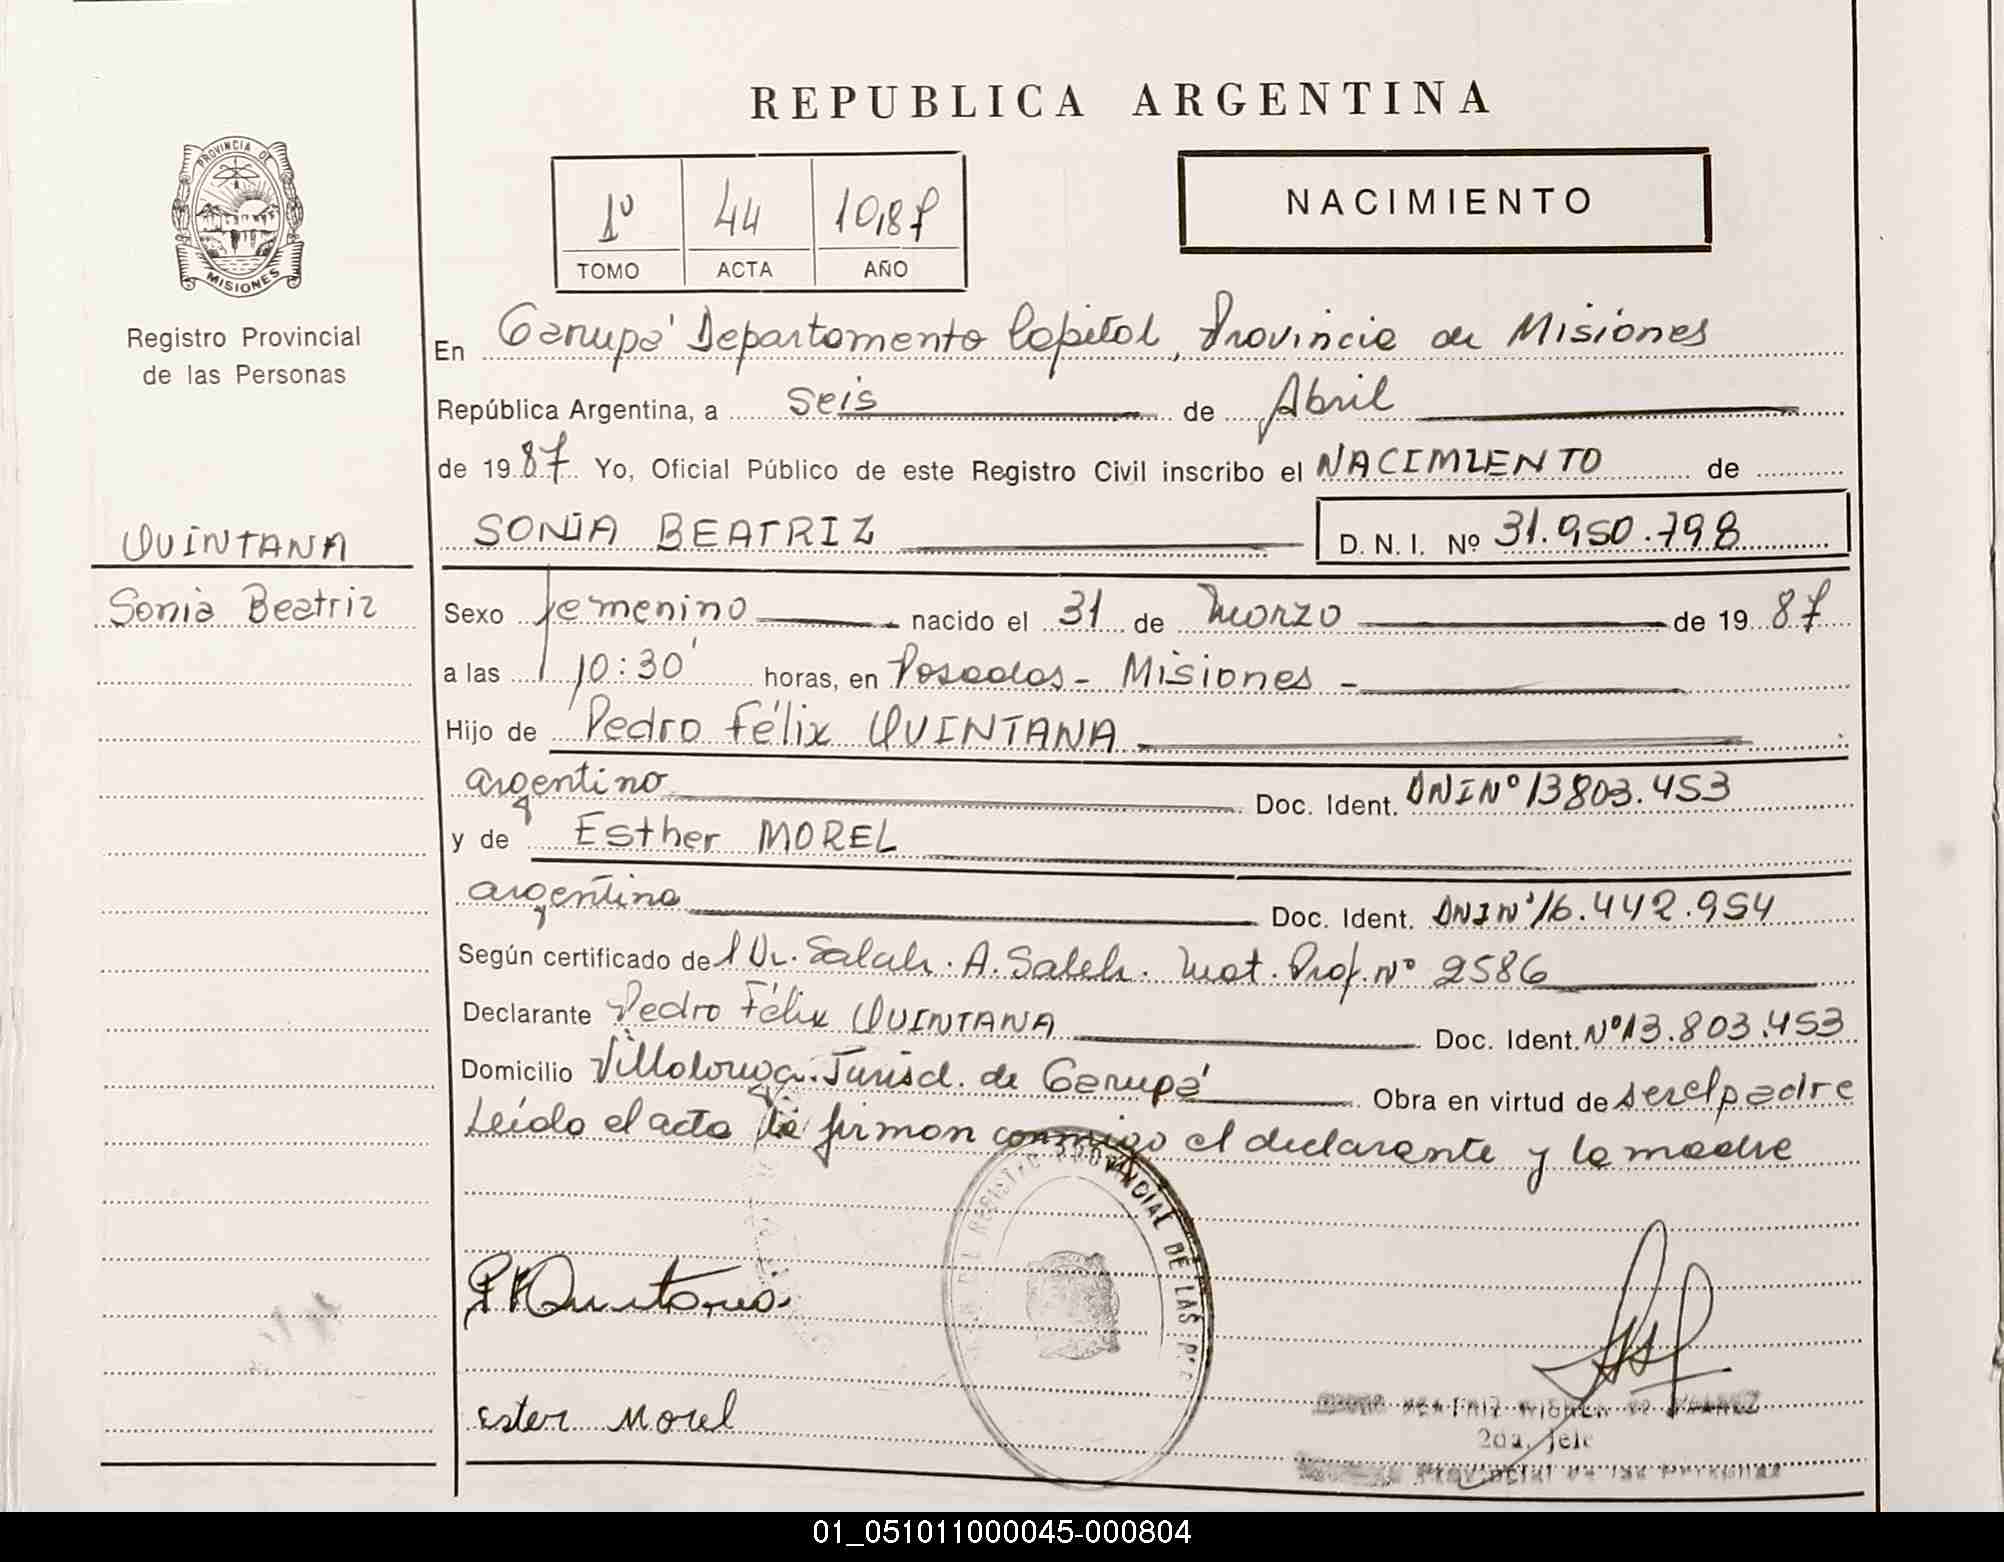 REPUBLICA ARGENTINA
PROVINCIA DE
MISIONES
Registro Provincial
de las Personas
1º 44 1987
TOMO ACTA AÑO
NACIMIENTO
En Garupá Departamento Capital, Provincia de Misiones
República Argentina, a seis de Abril
de 1987 Yo, Oficial Público de este Registro Civil inscribo el NACIMIENTO de
QUINTANA
Sonia Beatriz
SONIA BEATRIZ D. N. I. Nº 31.950.798
Sexo femenino nacido el 31 de Marzo de 1987
a las 10:30' horas, en Posadas - Misiones -
Hijo de Pedro Félix QUINTANA
argentino Doc. Ident. DNI Nº 13803.453
y de Esther MOREL
argentina Doc. Ident. DNI Nº 16.442.954
Según certificado del Dr. Salah. A. Saleh. Mat. Prof. Nº 2586
Declarante Pedro Félix QUINTANA Doc. Ident. Nº 13.803.453
Domicilio Villalonga. Jurisd. de Garupá Obra en virtud de ser el padre
Leído el acta la firman conmigo el declarante y la madre
REGISTRO PROVINCIAL DE LAS
P F Quintana
Ester Morel
2da. Jefe
Provincial de las Personas
01_051011000045-000804